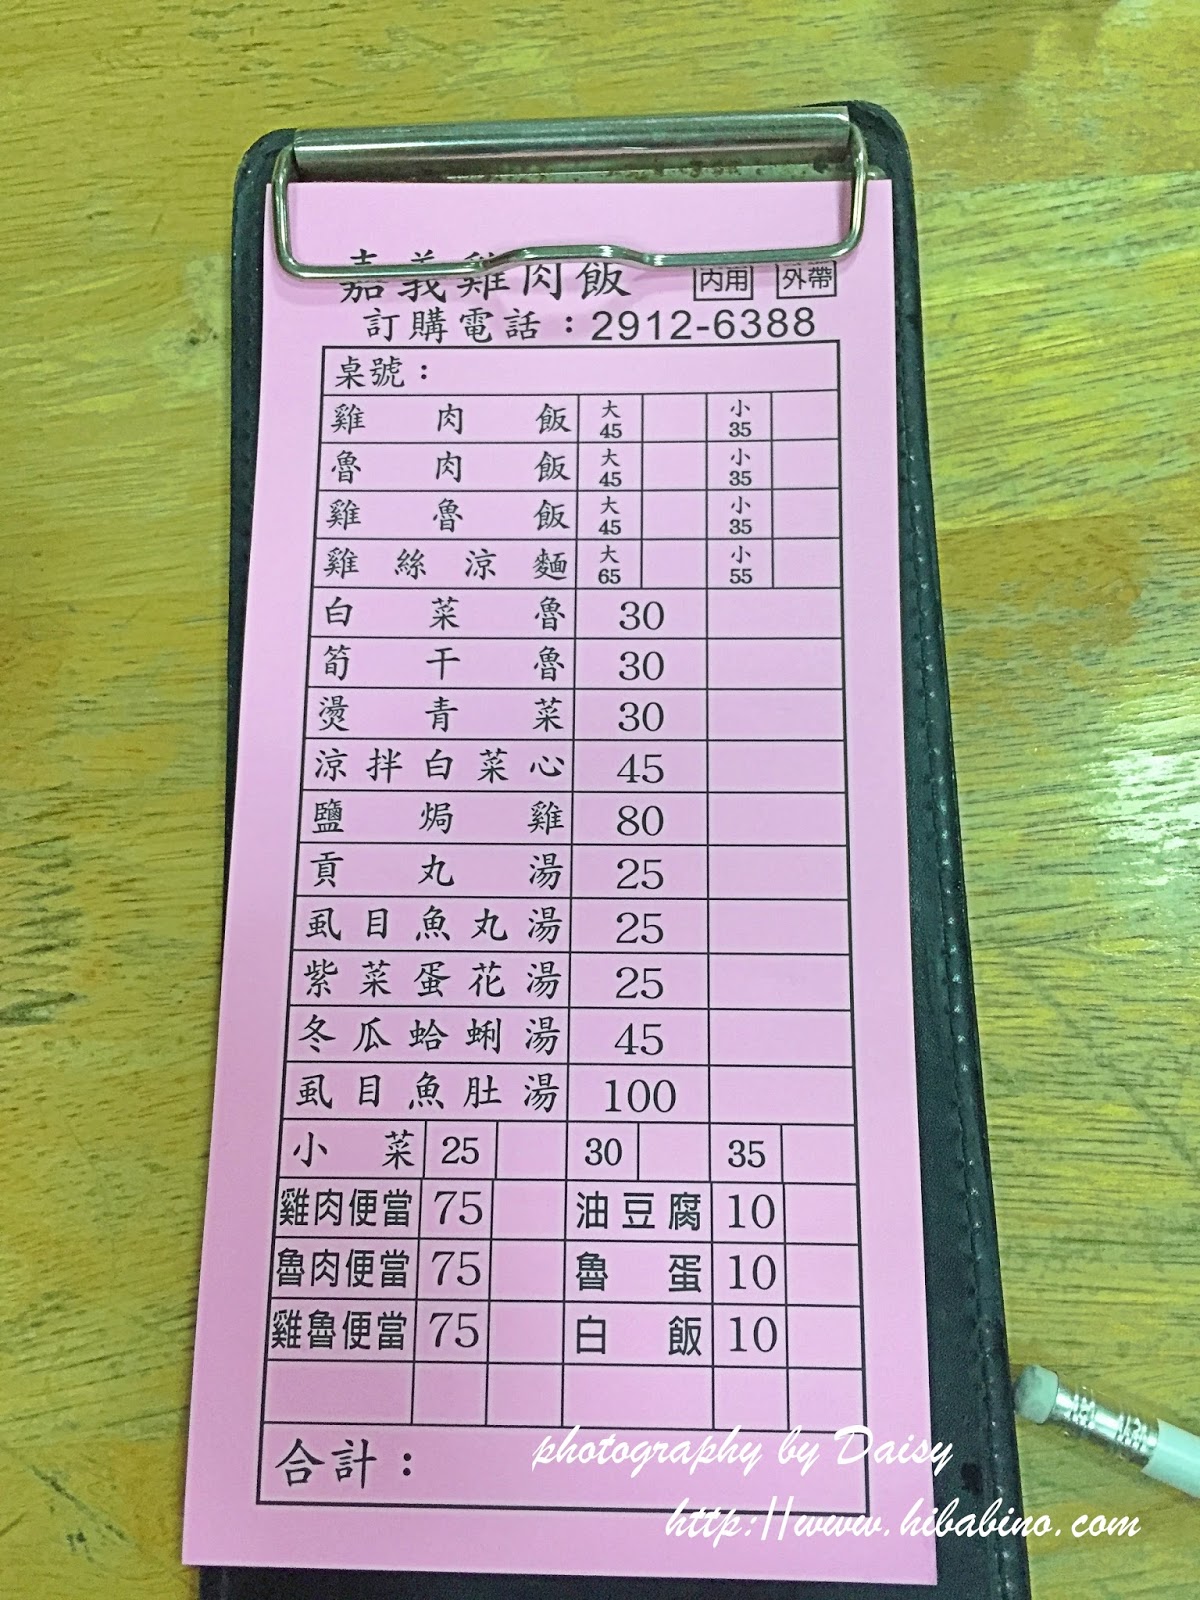 嘉義雞肉飯 內用 外帶
訂購電話：2912-6388
桌號：
雞肉飯 大45 小35
魯肉飯 大45 小35
雞魯飯 大45 小35
雞絲涼麵 大65 小55
白菜魯 30
筍干魯 30
燙青菜 30
涼拌白菜心 45
鹽焗雞 80
貢丸湯 25
虱目魚丸湯 25
紫菜蛋花湯 25
冬瓜蛤蜊湯 45
虱目魚肚湯 100
小菜 25 30 35
雞肉便當 75 油豆腐 10
魯肉便當 75 魯蛋 10
雞魯便當 75 白飯 10
合計：
photography by Daisy
http://www.hibabino.com